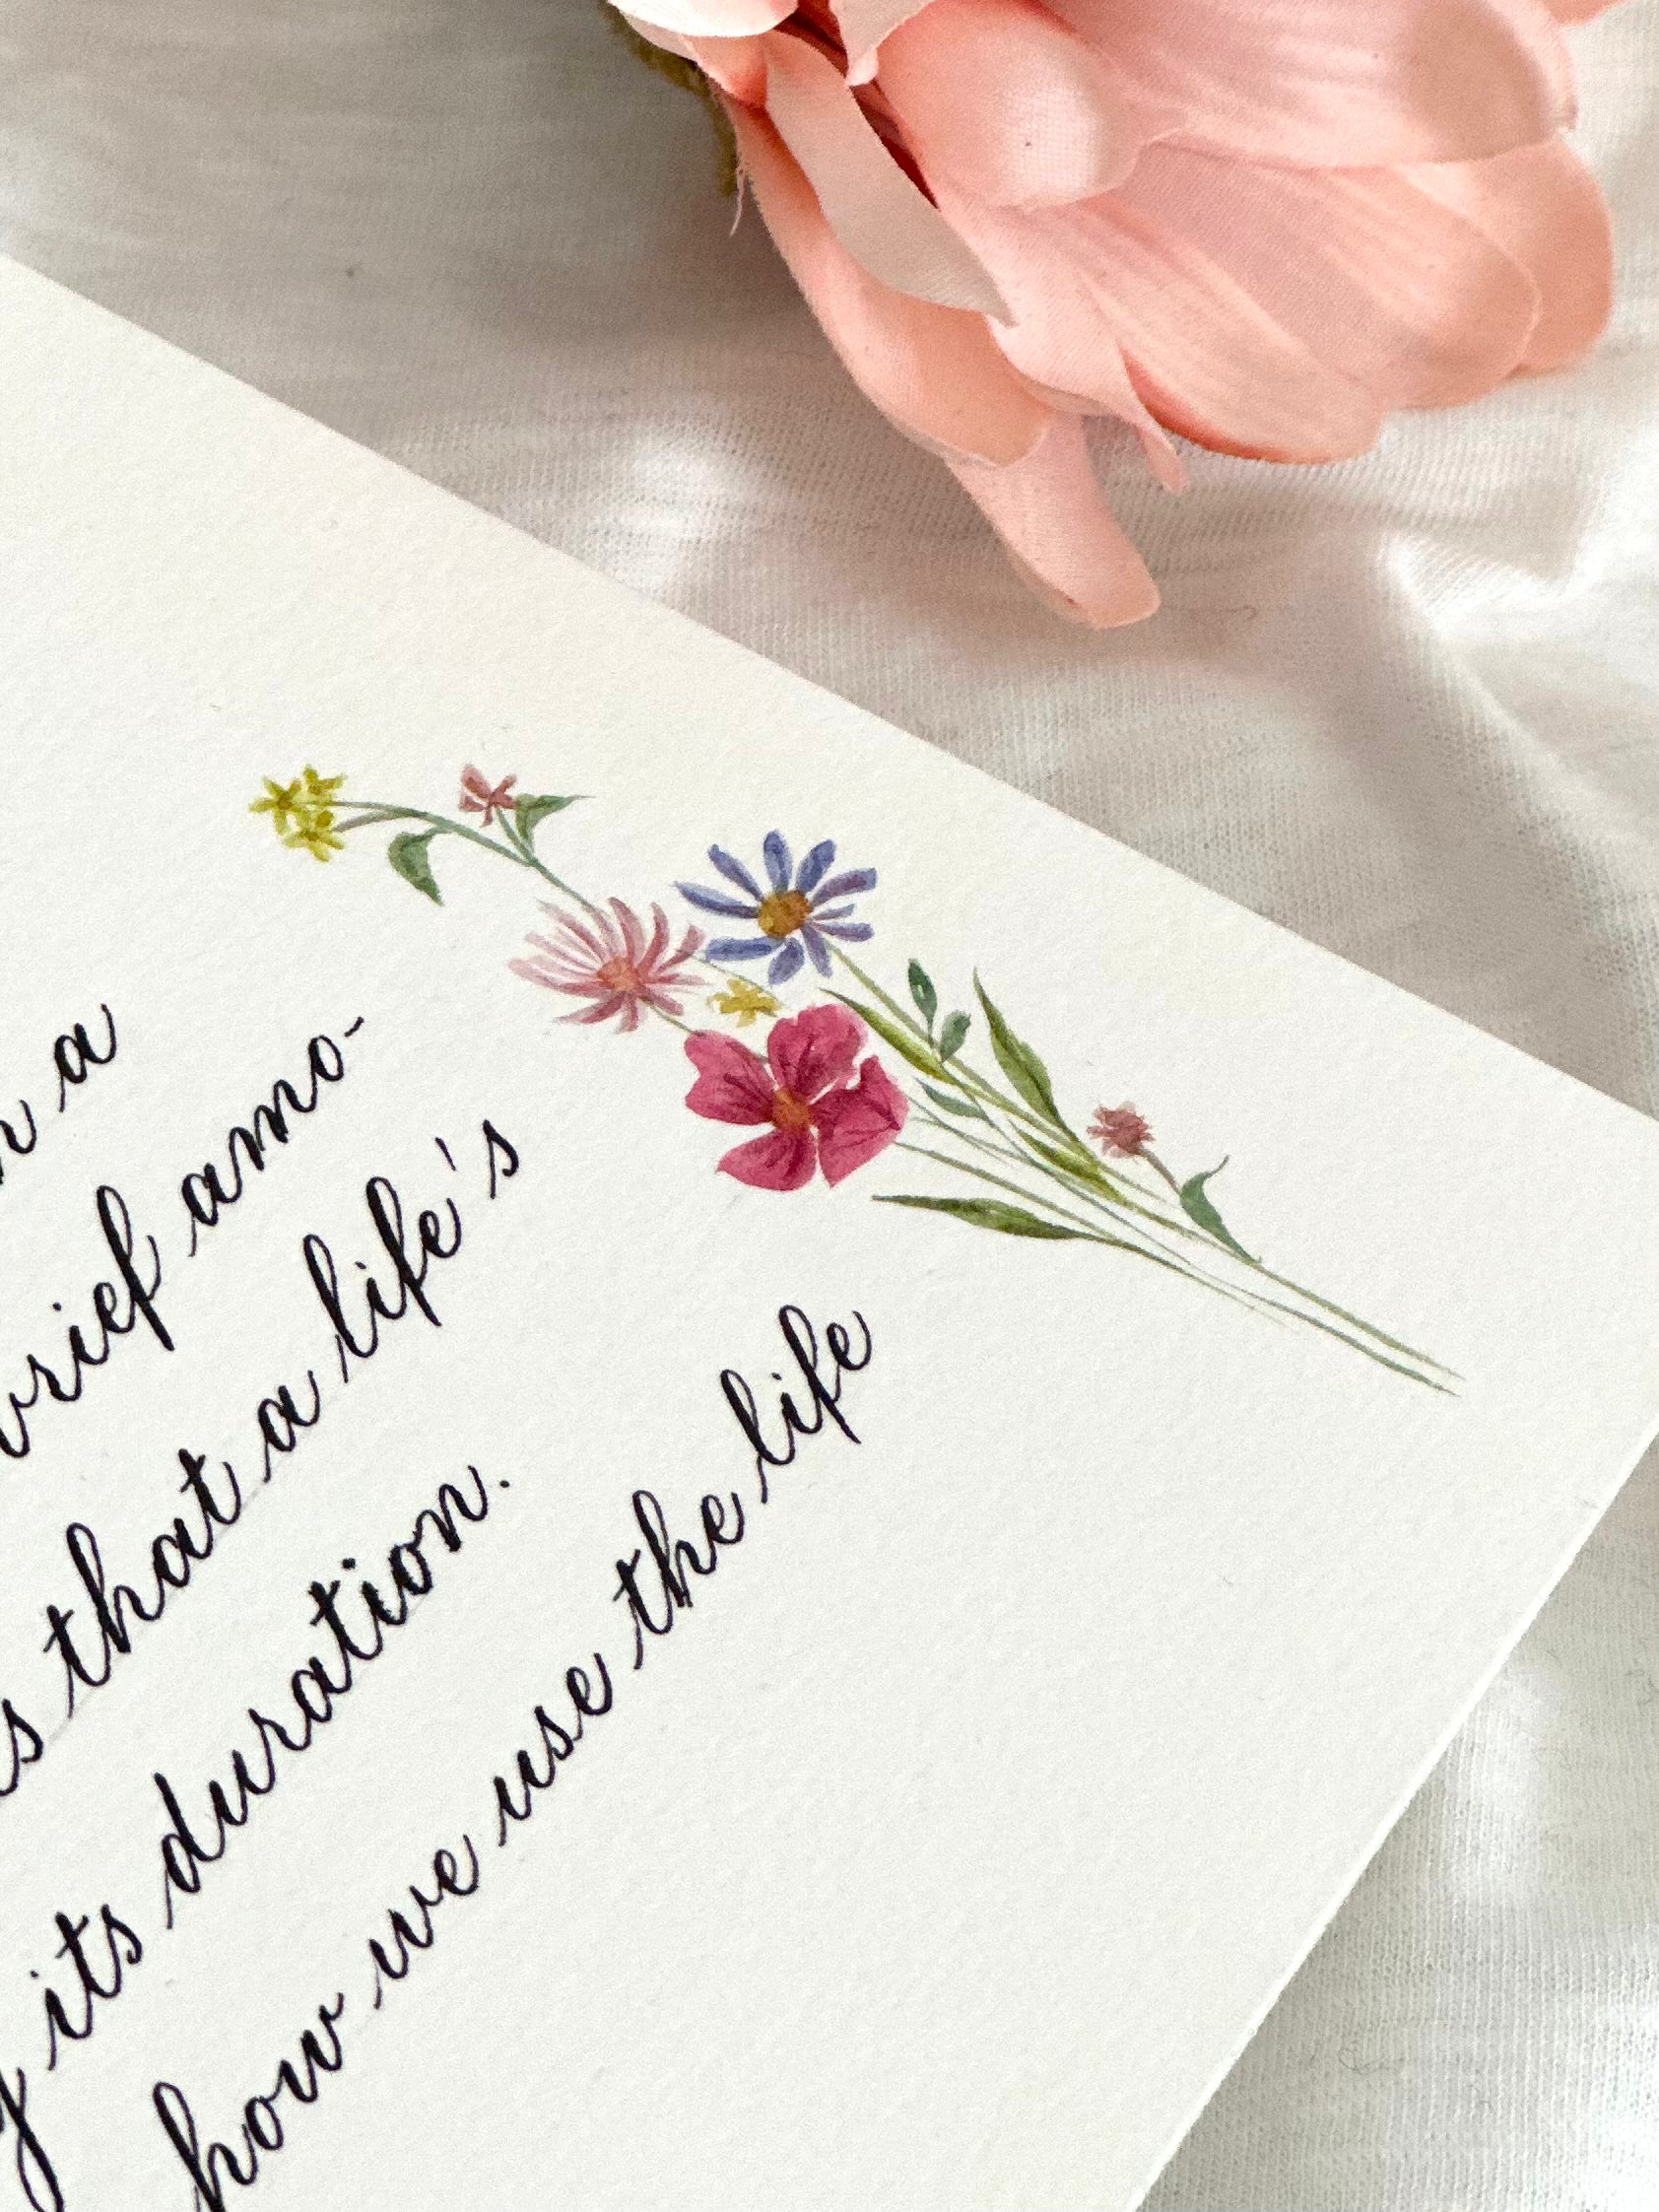 a
brief amo-
that a life's
its duration.
how we use the life